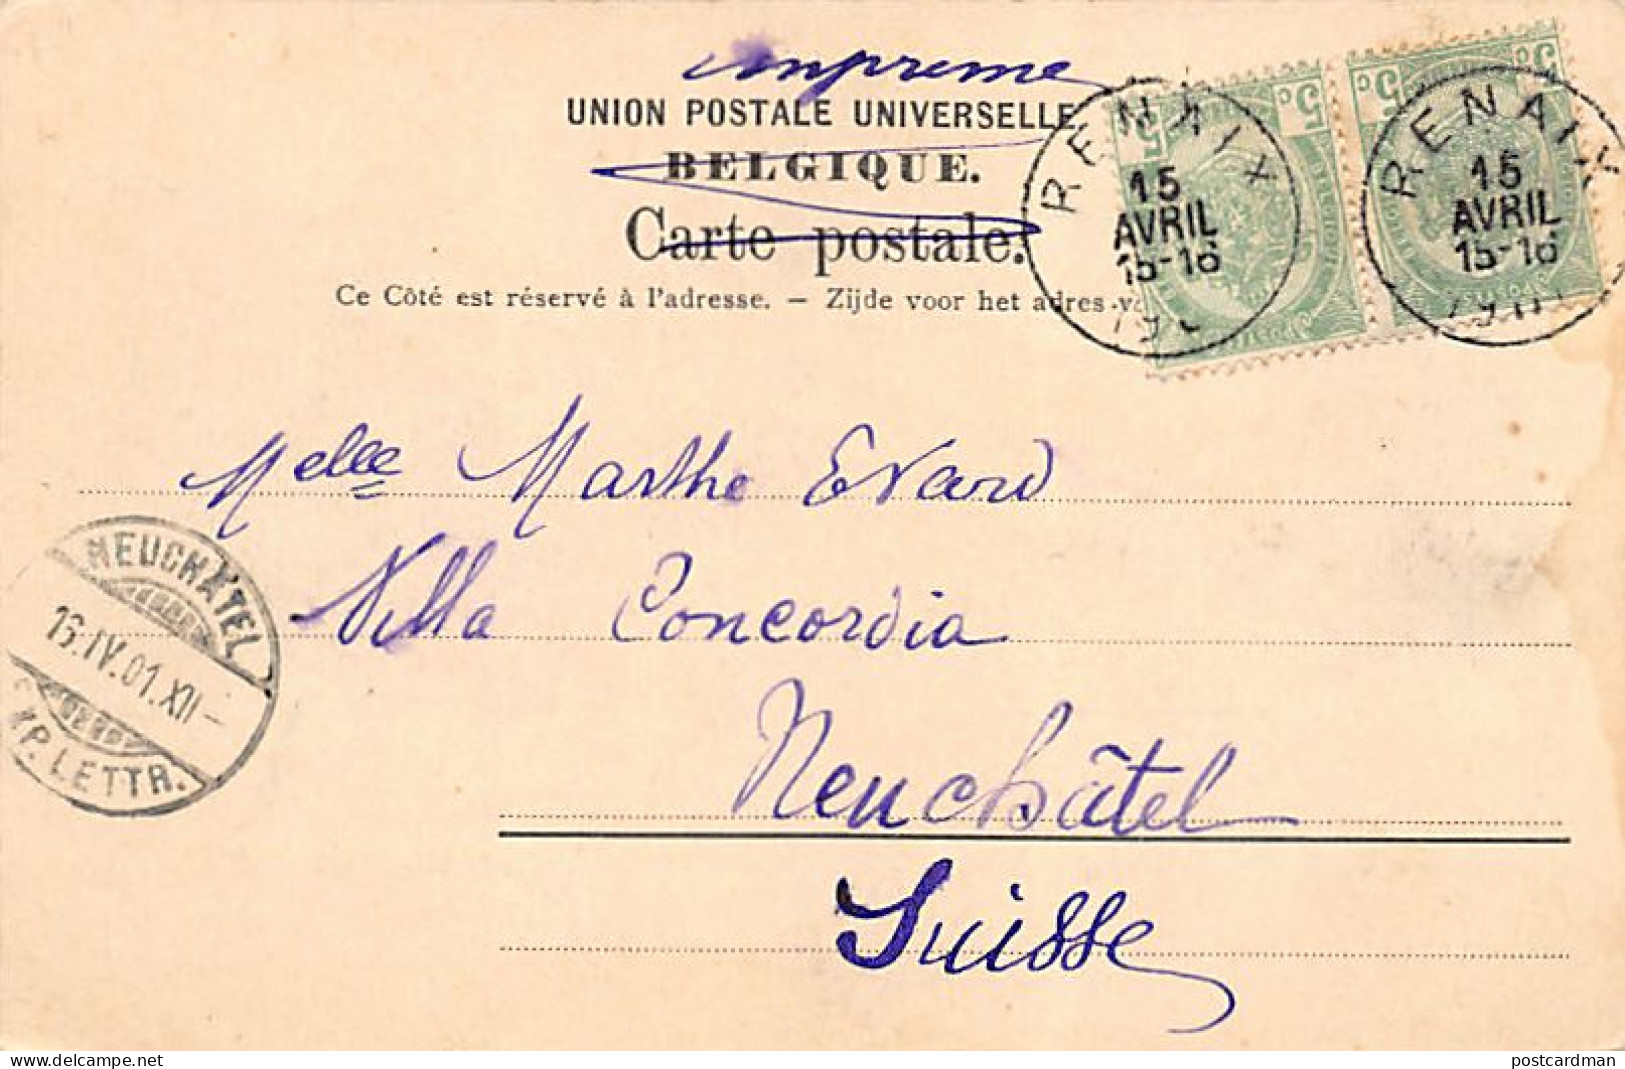 imprime
UNION POSTALE UNIVERSELLE
BELGIQUE.
Carte postale.
Ce Côté est réservé à l'adresse. — Zijde voor het adres
5 c 5
5 c 5 c
RENAIX
15
AVRIL
15-16
RENAIX
15
AVRIL
15-16
Melle Marthe Evard
Villa Concordia
Neuchâtel
Suisse
NEUCHÂTEL
16.IV.01.XII-
EXP. LETTR.
delcampe.net
postcardman